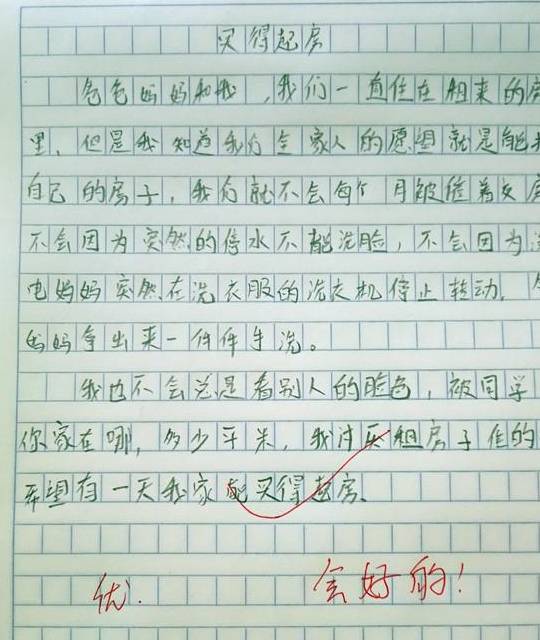 买得起房
爸爸妈妈和我,我们一直住在租来的房
里,但是我知道我们全家人的愿望就是能
自己的房子,我们就不会每个月被催着交房
不会因为突然的停水不能洗脸,不会因为
电妈妈突然在洗衣服的洗衣机停止转动,
妈妈拿出来一件件手洗。
我也不会总是看别人的脸色,被同学
你家在哪,多少平米,我讨厌租房子住的
希望有一天我家能买得起房。
优.
会好的!